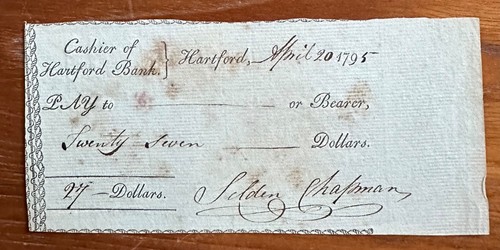 Cashier of
Hartford Bank. } Hartford, April 20 1795
PAY to ——— or Bearer,
Twenty Seven ——— Dollars.
27 — Dollars. Selden Chapman